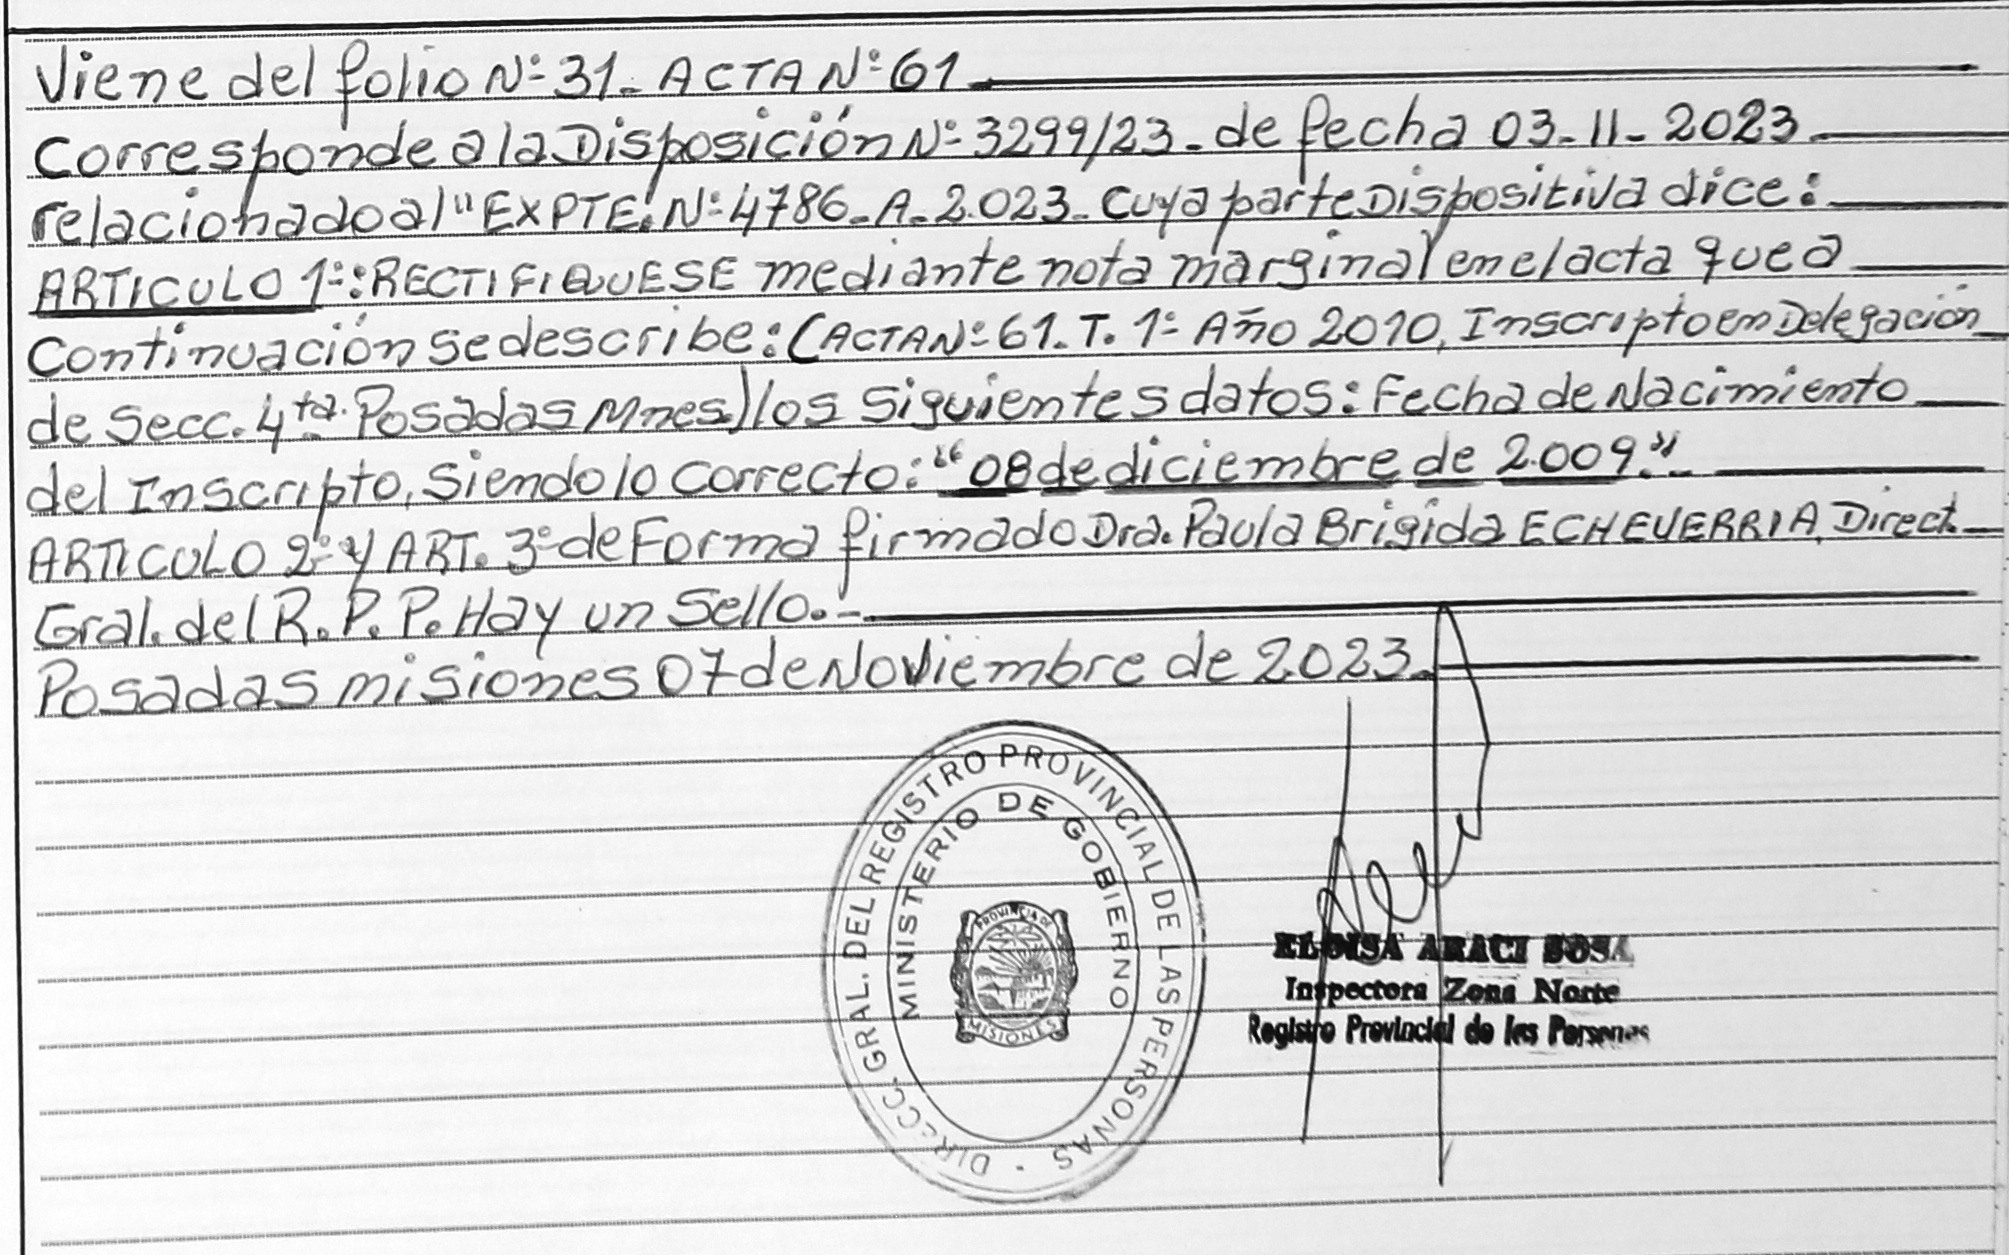 Viene del folio Nº 31_ ACTA Nº 61_
Corresponde a la Disposición Nº 3299/23_ de fecha 03_11_2023_
relacionado al "EXPTE. Nº 4786_A_2.023_ Cuya parte Dispositiva dice:
ARTICULO 1º: RECTIFIQUESE mediante nota marginal en el acta que a
Continuación se describe: (ACTA Nº 61_T. 1º Año 2010, Inscripto en Delegación
de Secc. 4ta. Posadas Mnes.) los siguientes datos: Fecha de Nacimiento
del Inscripto, Siendo lo Correcto: "08 de diciembre de 2.009."_
ARTICULO 2º y ART. 3º de Forma firmado Dra. Paula Brigida ECHEVERRIA, Direct.
Gral. del R.P.P. Hay un Sello._
Posadas misiones 07 de Noviembre de 2023_
DIRECC. GRAL. DEL REGISTRO PROVINCIAL DE LAS PERSONAS
MINISTERIO DE GOBIERNO
PROVINCIA DE
MISIONES
ELOISA ARACI SOSA
Inspectora Zona Norte
Registro Provincial de las Personas